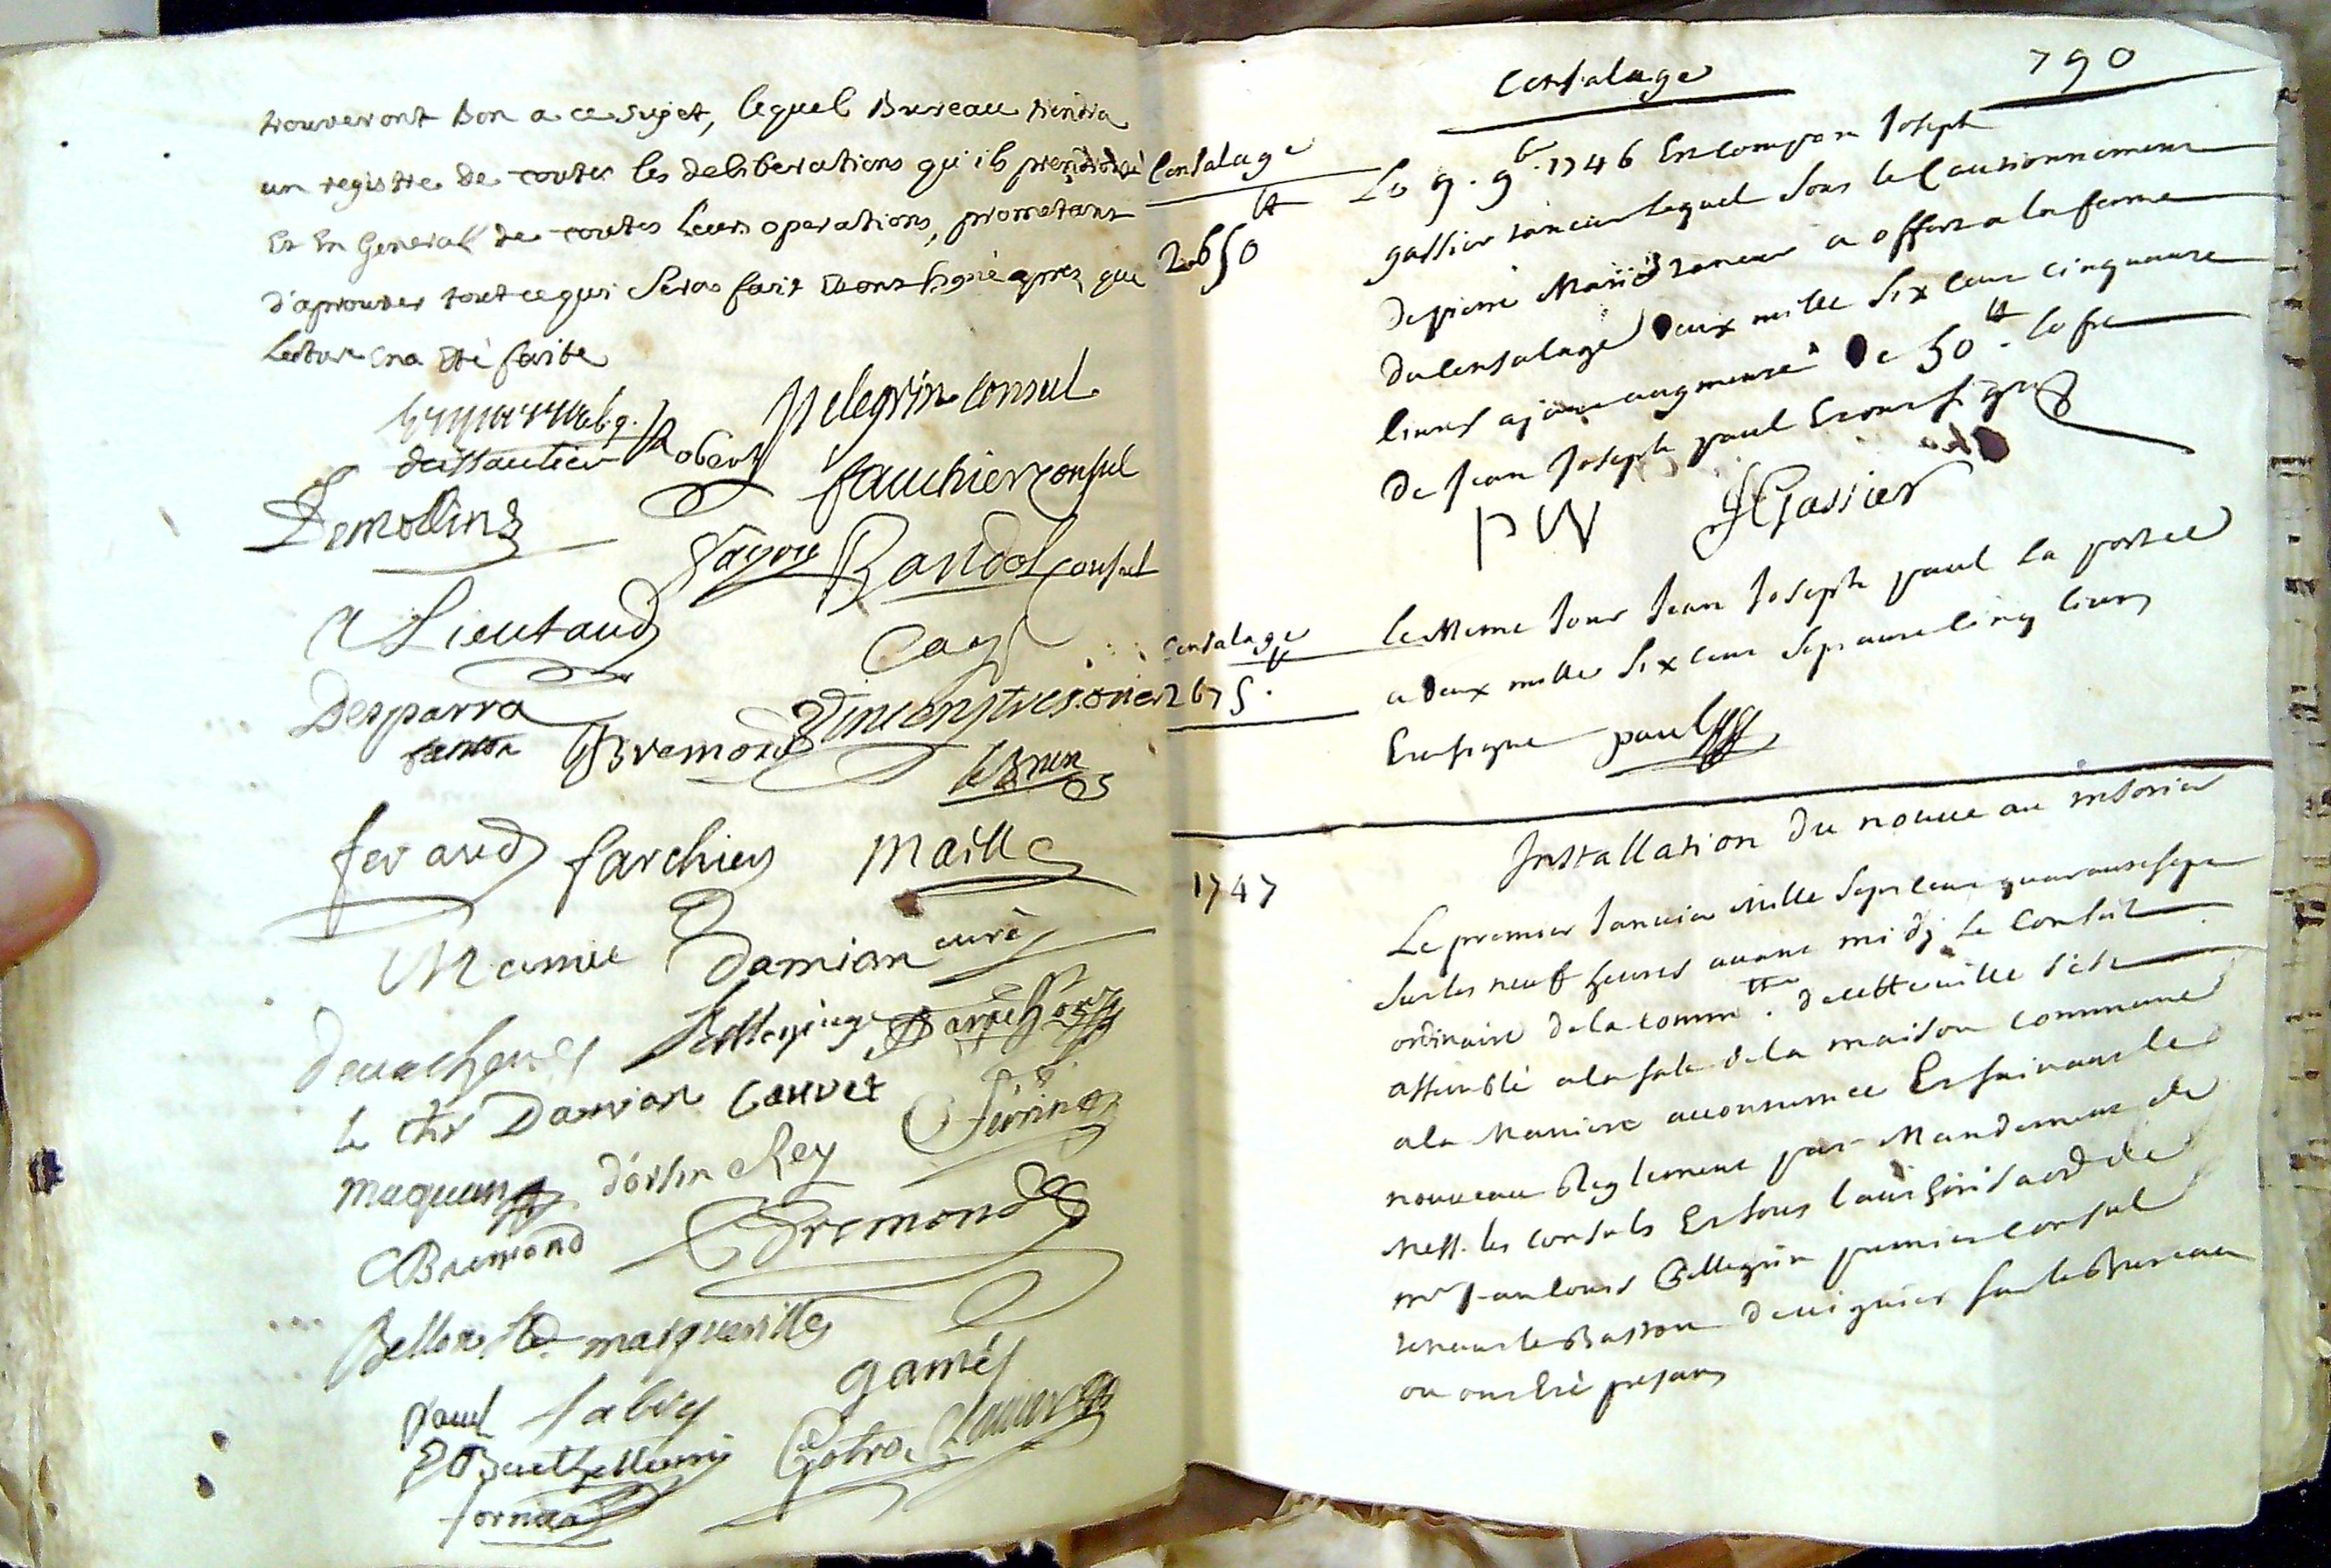 trouveront bon a ce sujet, lequel Bureau tiendra
un registre de toutes les deliberations qu'ils prendront
Et En General de toutes leurs operations, prometant
d'aprouver tout ce qui Sera fait Et ont signé aprez que
Lecture en a été faite
Pelegrin consul
dessautier Robert
fauchier consul
Demollins
fâgoue Bandol consul
A Lieutaud
Cays
Desparra
tresorier
Bremond
leBrun
feraud farchier maille
Mamie Damian curé
Devachere
le chr Damian Cauvet
dorsin Rey
CBremond
Bremond
Bellon marqueville
gamés
paul fabry
Barthellemy
fornaa
Censalage
790
Censalage
2650 ₶
Le 9. 9br. 1746 En Compar Joseph
gassier lequel Sous le Cautionnement
de pierre a offert a la ferme
du Censalage Deux mille Six cens cinquante
livres ajant augmenté De 50 ₶.
de Jean Joseph paul Et ont signé
PW JGassier
Censalage
2675 ₶.
le Meme Jour Jean Joseph paul la portée
a Deux mille Six cens Septante Cinq livres
Et a signe paul
Installation du nouveau tresorier
1747
Le premier Janvier Mille Sept Cens quarante sept
Sur les neuf heures avant midy Le Conseil
ordinaire de la comm.tté de cette ville s'est
assemblé a la sale de la maison commune
a la Maniere accoutumée Et suivant le
nouveau Reglement par Mandement de
Mess. les Consuls Et sous l'autorisaôn de
mr Jean louis Pellegrin premier Consul
tenant le Baston de viguier sur le Bureau
ou ont Eté presans